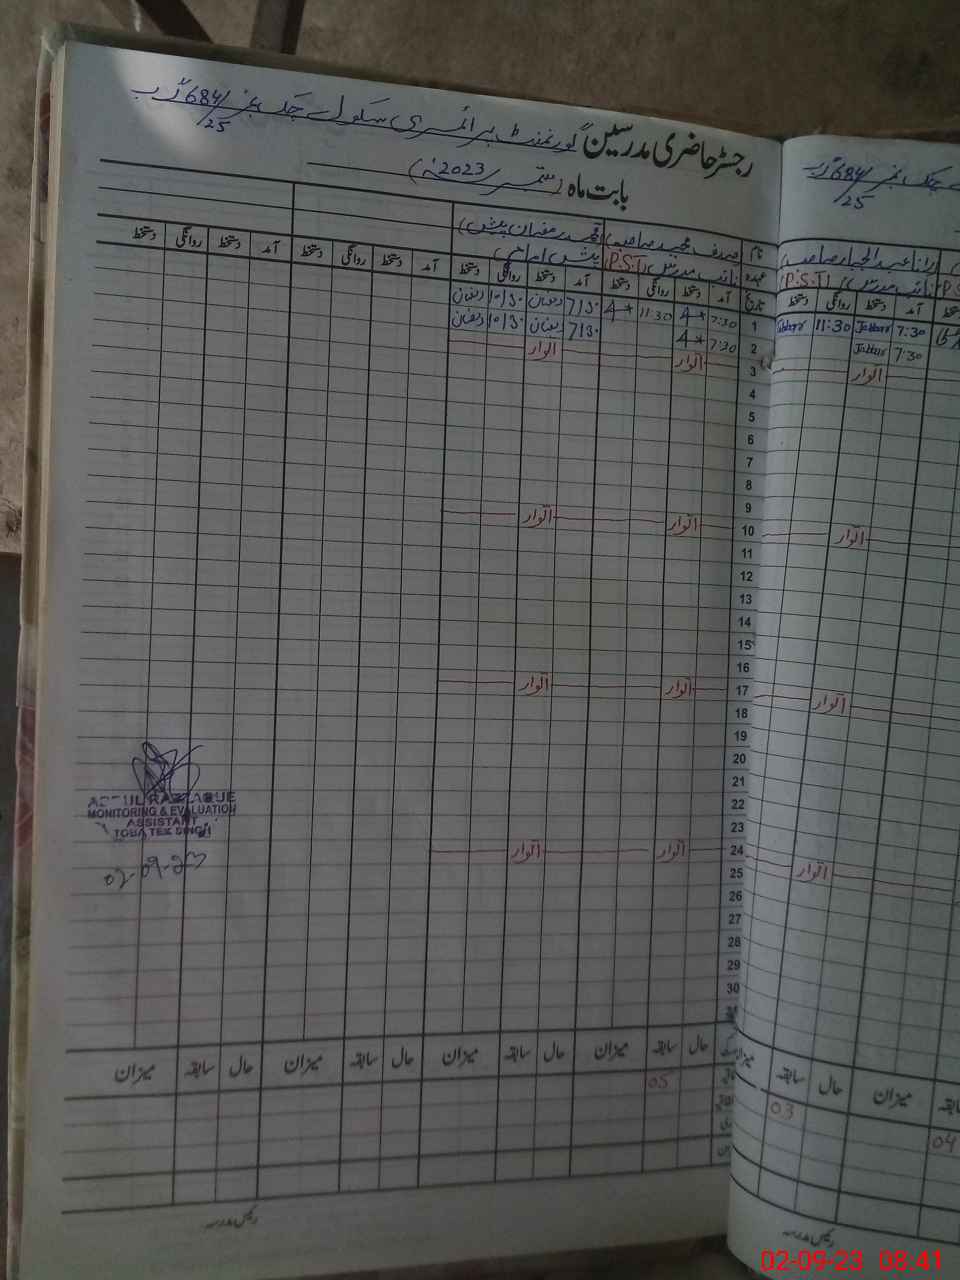 رجسٹر حاضری مدرسین گورنمنٹ پرائمری سکول چک نمبر 684/25 گ ب
بابت ماہ (ستمبر 2023ء)
نام
عہدہ نائب مدرس (P.S.T)
تاریخ آمد دستخط روانگی دستخط آمد دستخط روانگی دستخط آمد دستخط روانگی دستخط آمد دستخط روانگی دستخط
1 7:30 11:30 7/30 رمضان 10/30 رمضان
2 7:30 7/30 رمضان 10/30 رمضان
3 اتوار اتوار
4
5
6
7
8
9
10 اتوار اتوار
11
12
13
14
15
16
17 اتوار اتوار
18
19
20
21
22
23
24 اتوار اتوار
25
26
27
28
29
30
حال سابقہ میزان حال سابقہ میزان حال سابقہ میزان حال سابقہ میزان
05
رئیس مدرسہ
ABDUL RAZZAQUE
MONITORING & EVALUATION
ASSISTANT
TOBA TEK SINGH
02-09-23
چک نمبر 684/25 گ ب
رانا عبدالجبار صاحب
نائب مدرس (P.S.T)
آمد دستخط روانگی دستخط
7:30 Jabbar 11:30 Jabbar
7:30 Jabbar
اتوار
اتوار
اتوار
اتوار
میزان سابقہ حال میزان
03
04
رئیس مدرسہ
02-09-23 08:41